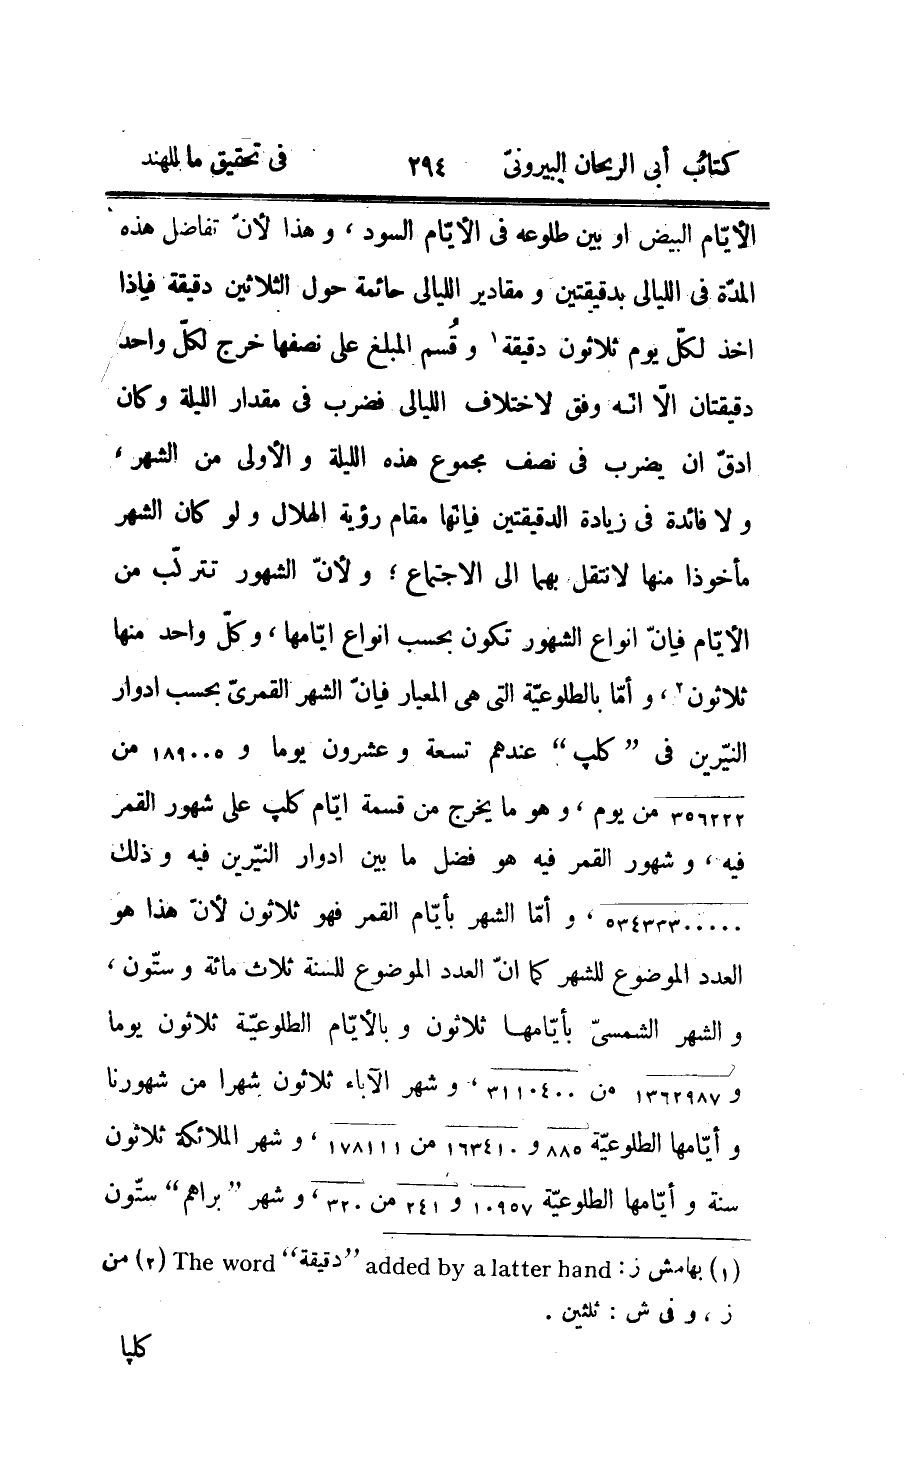 كتاب أبى الريحان البيرونىّ ٢٩٤ فى تحقيق ما للهند
الأيّام البيض او بين طلوعه فى الأيّام السود ، و هذا لأنّ تفاضل هذه
المدّة فى الليالى بدقيقتين و مقادير الليالى حائمة حول الثلاثين دقيقة فإذا
اخذ لكلّ يوم ثلاثون دقيقة١ و قُسم المبلغ على نصفها خرج لكلّ واحد
دقيقتان الّا انّه وفق لاختلاف الليالى فضرب فى مقدار الليلة وكان
ادقّ ان يضرب فى نصف مجموع هذه الليلة و الأولى من الشهر ،
و لا فائدة فى زيادة الدقيقتين فإنّها مقام رؤية الهلال و لو كان الشهر
مأخوذا منها لانتقل بهما الى الاجتماع ؛ و لأنّ الشهور تتركّب من
الأيّام فإنّ انواع الشهور تكون بحسب انواع ايّامها ، وكلّ واحد منها
ثلاثون٢ ، و أمّا بالطلوعيّة التى هى المعيار فإنّ الشهر القمرىّ بحسب ادوار
النيّرين فى ”كلپ“ عندهم تسعة و عشرون يوما و ١٨٩٠٠٥ من
٣٥٦٢٢٢ من يوم ، و هو ما يخرج من قسمة ايّام كلپ على شهور القمر
فيه ، و شهور القمر فيه هو فضل ما بين ادوار النيّرين فيه و ذلك
٥٣٤٣٣٣٠٠٠٠٠ ، و أمّا الشهر بأيّام القمر فهو ثلاثون لأنّ هذا هو
العدد الموضوع للشهر كما انّ العدد الموضوع للسنة ثلاث مائة و ستّون ،
و الشهر الشمسىّ بأيّامها ثلاثون و بالأيّام الطلوعيّة ثلاثون يوما
و ١٣٦٢٩٨٧ من ٣١١٠٤٠٠ ، و شهر الآباء ثلاثون شهرا من شهورنا
و أيّامها الطلوعيّة ٨٨٥ و ١٦٣٤١٠ من ١٧٨١١١ ، و شهر الملائكة ثلاثون
سنة و أيّامها الطلوعيّة ١٠٩٥٧ و ٢٤١ من ٣٢٠ ، و شهر ”براهم“ ستّون
(١) بهامش ز : The word “دقيقة” added by a latter hand (٢) من
ز ، و فى ش : ثلثين .
كلپا